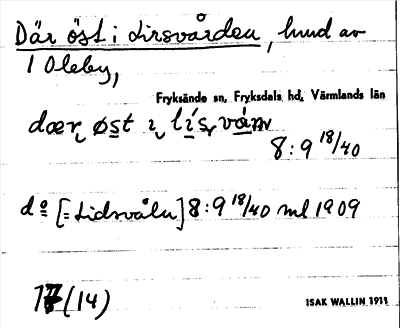 Där öst i Lirsvården, hund av
1 Oleby,
Fryksände sn, Fryksdals hd, Värmlands län
dær øst ı lı́s vá̊ɳ
8:9 18/40
do [= Lidsvåln] 8:9 18/40 ml 1909
17 (14)
ISAK WALLIN 1911